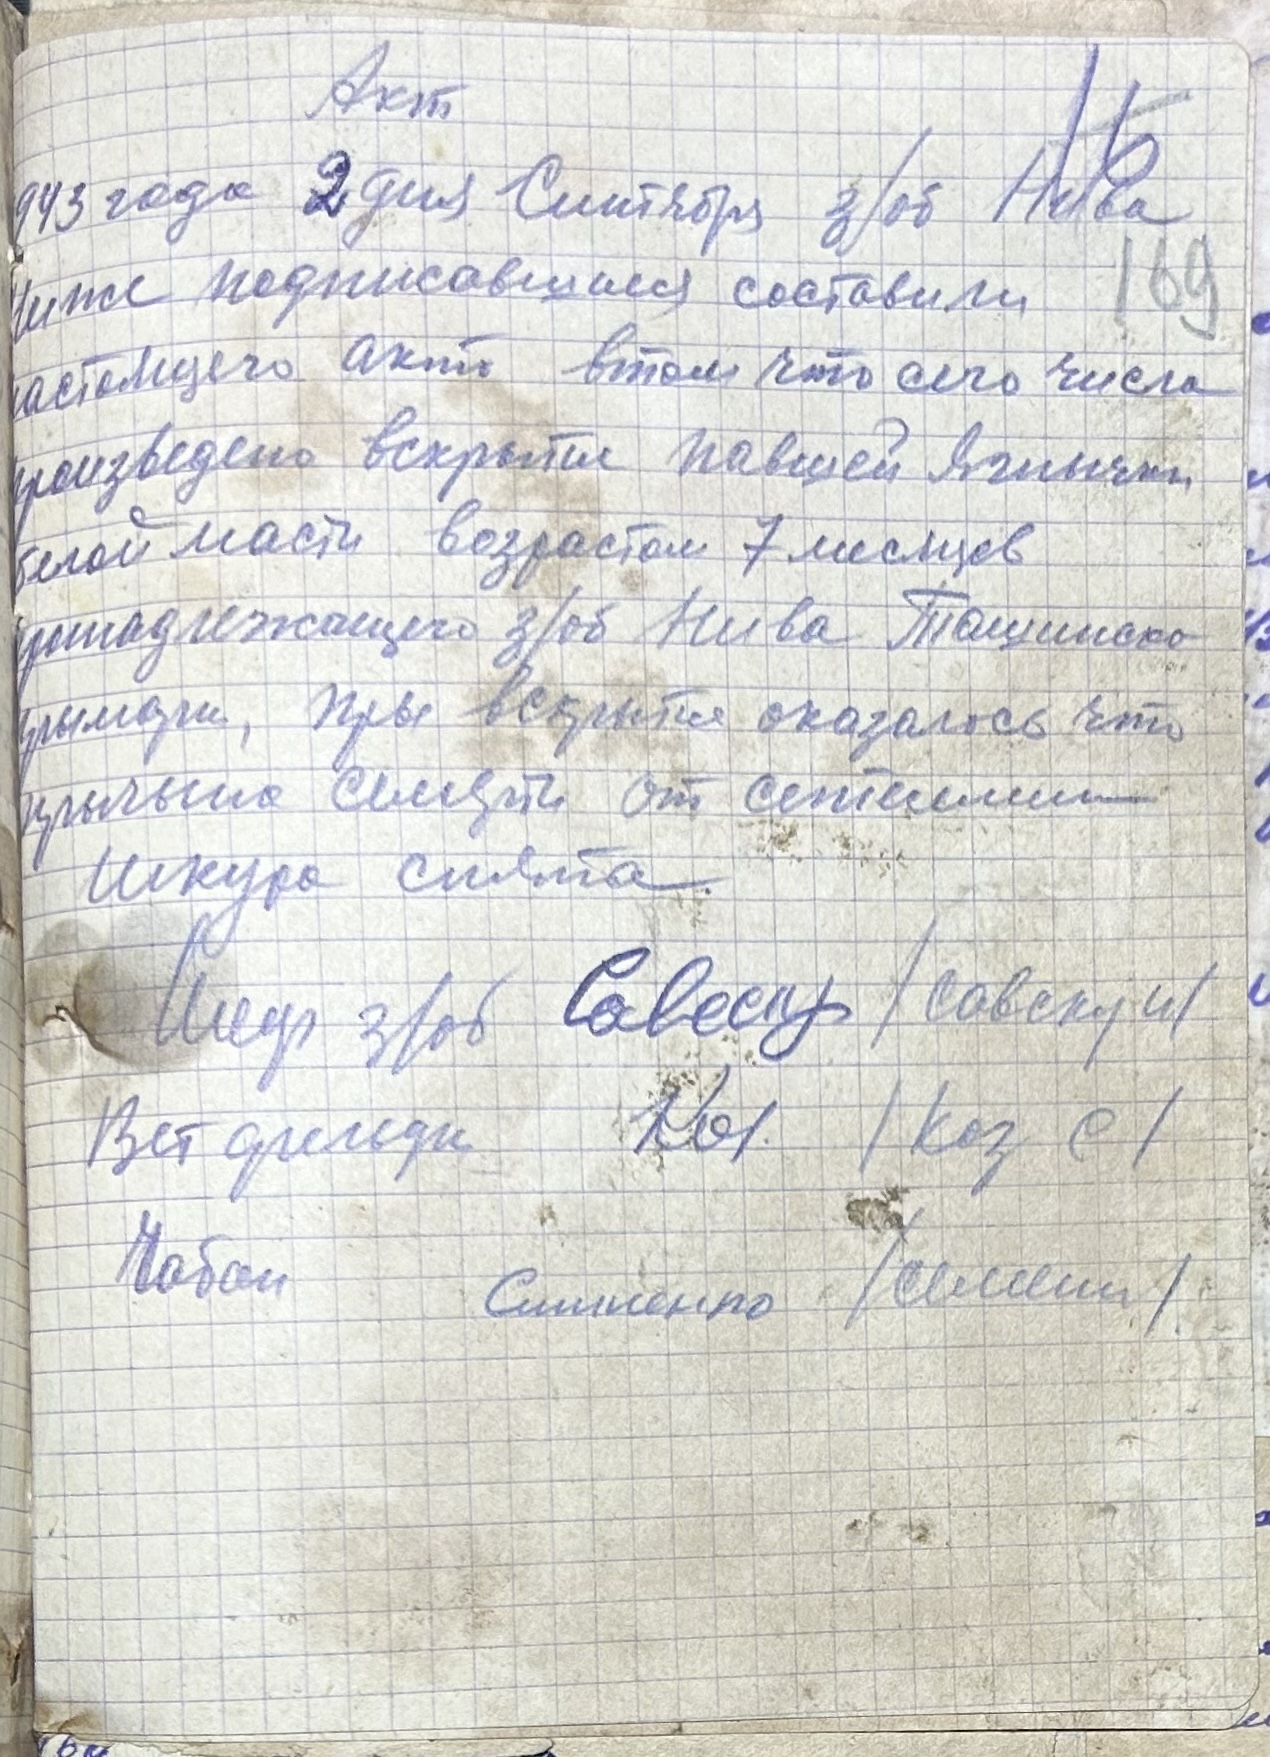 Акт
15
943 года 2 дня Синтября з/об Нива
169
Ниже подписавшиеся составили
настоящего акта втом что сего числа
произведено вскрытие павшей Ягнычки
белой масти возрастом 7 месяцев
принадлежащего з/об Нива Ташинско
, пры вскрытие оказалось что
прычына смерти от
Шкура снята.
з/об Савскуй /Савскуй/
Вет фельдш Коз. /Коз С/
Чабан /Семени/